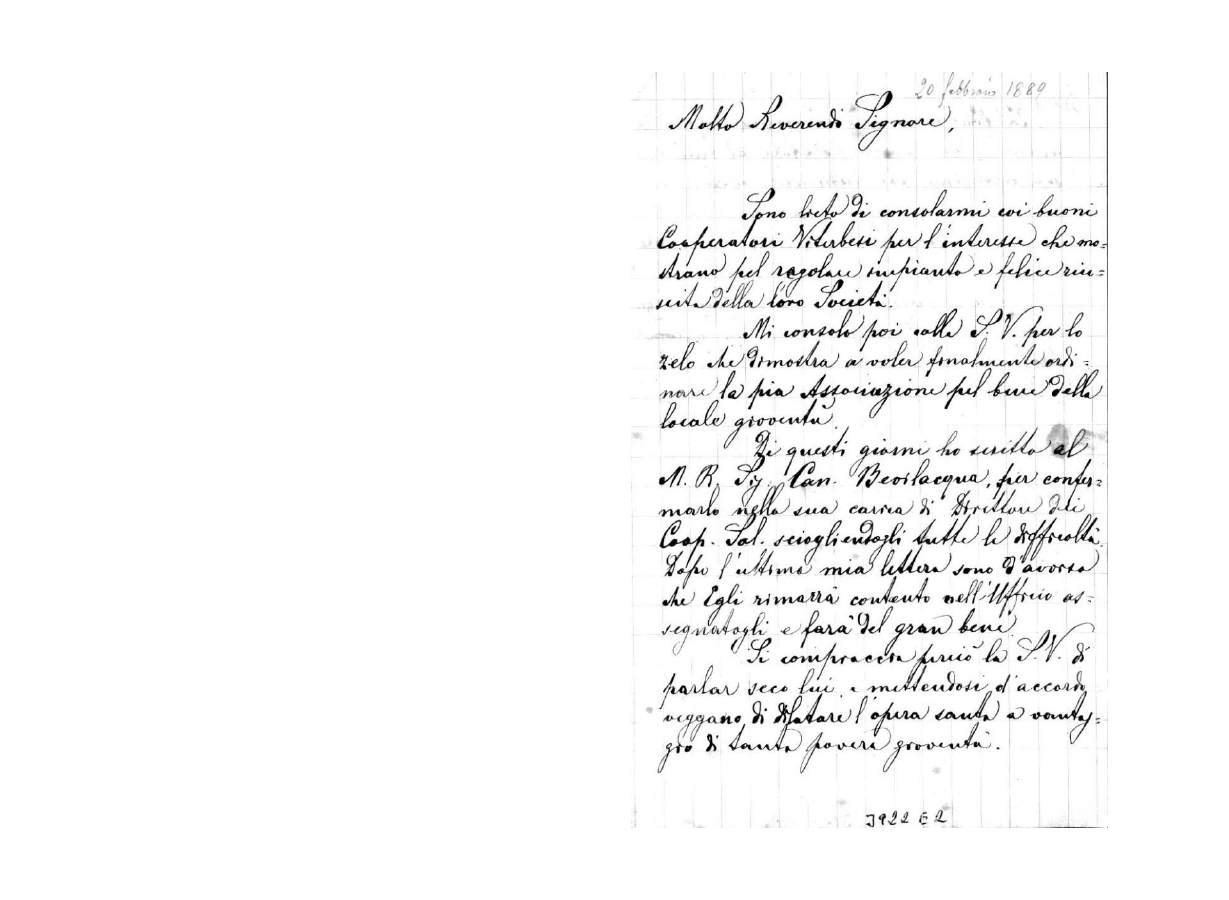 20 febbraio 1889
Molto Reverendo Signore,
Sono lieto di consolarmi coi buoni
Cooperatori Viterbesi per l'interesse che mo=
strano pel regolare impianto e felice riu=
scita della loro Società.
Mi consolo poi colla S. V. per lo
zelo che dimostra a voler finalmente ordi=
nare la pia Associazione pel bene della
locale gioventù.
Di questi giorni ho scritto al
M. R. Sig. Can. Bevilacqua, per confer=
marlo nella sua carica di Direttore dei
Coop. Sal. sciogliendogli tutte le difficoltà.
Dopo l'ultima mia lettera sono d'avviso
che Egli rimarrà contento nell'Ufficio as=
segnatogli e farà del gran bene.
Si compiaccia perciò la S. V. di
parlar seco lui, e mettendosi d'accordo
veggano di dilatare l'opera santa a vantag=
gio di tanta povera gioventù.
3922 E 2